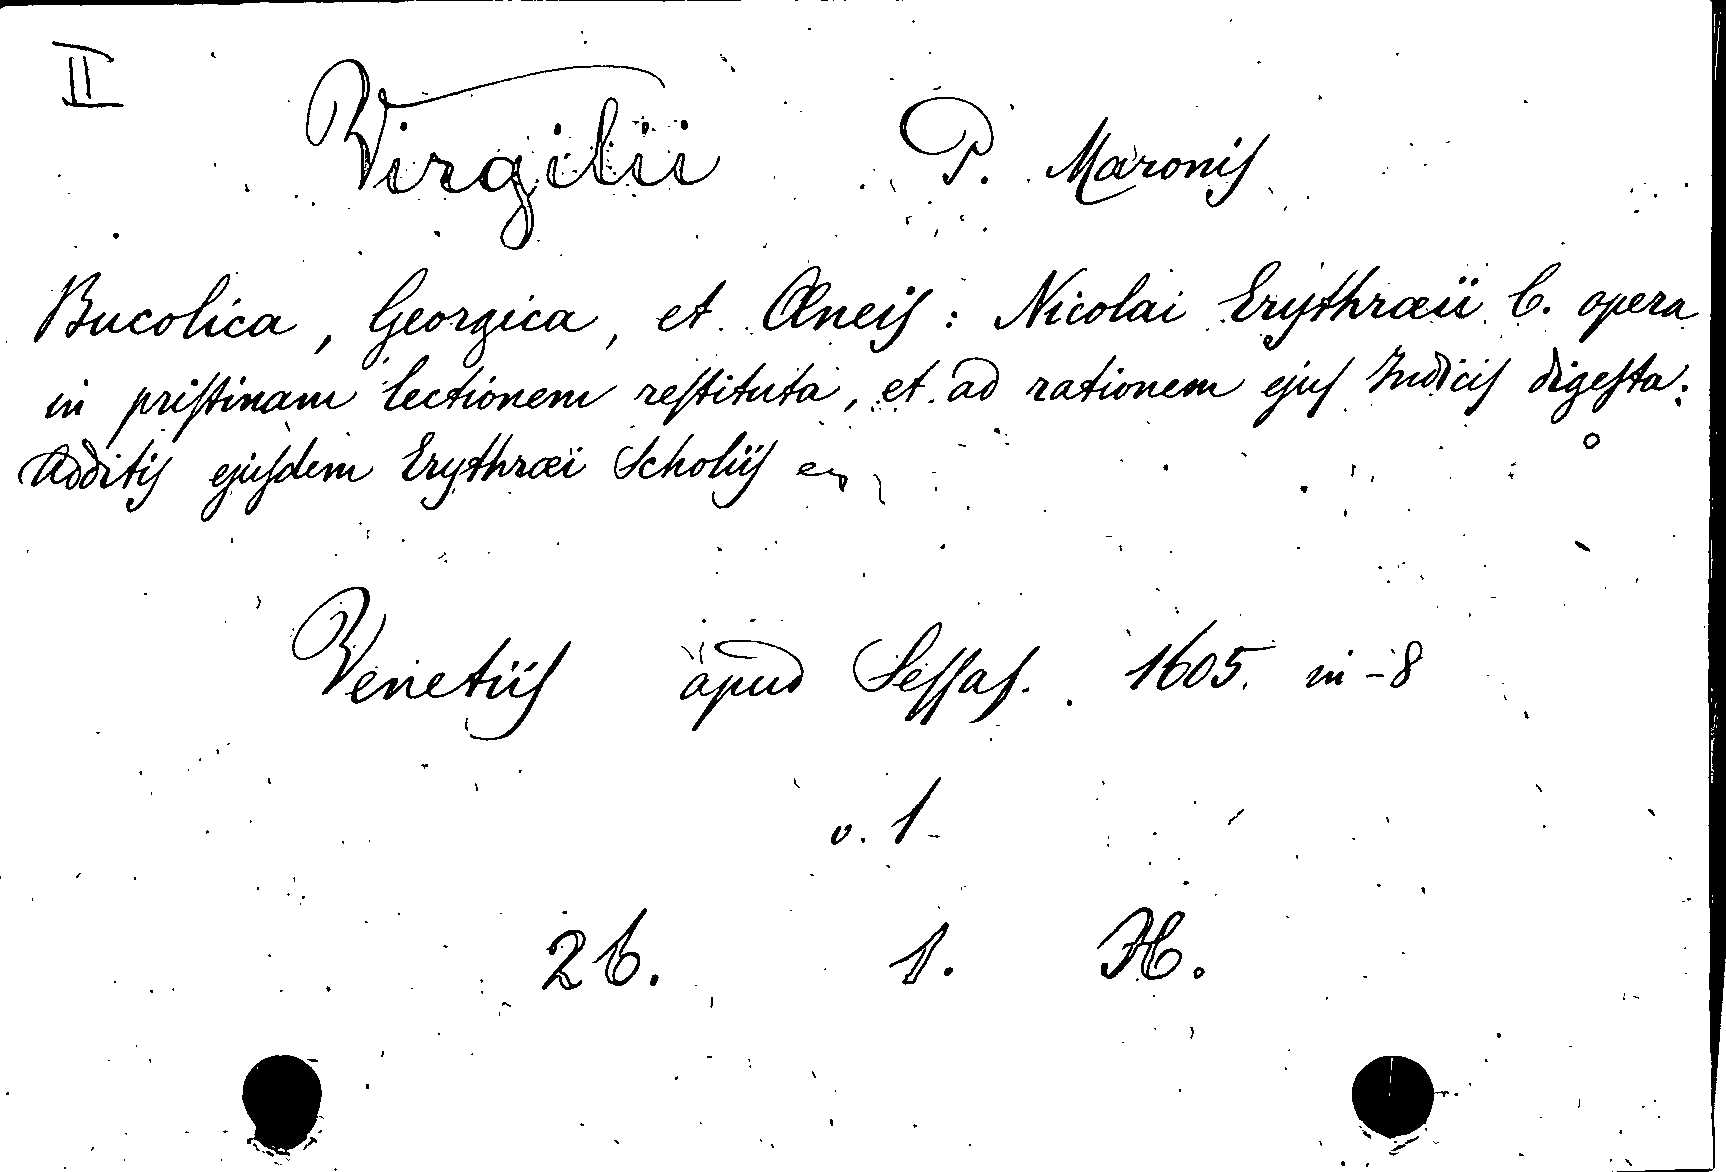 II
Virgilii P. Maronis
Bucolica, Georgica, et Æneis: Nicolai Erythræii C. opera
in pristinam lectionem restituta, et ad rationem ejus Indicis digesta:
Additis ejusdem Erythræi Scholiis
Venetiis apud Sessas. 1605. in-8
v. 1
26. 1. H.